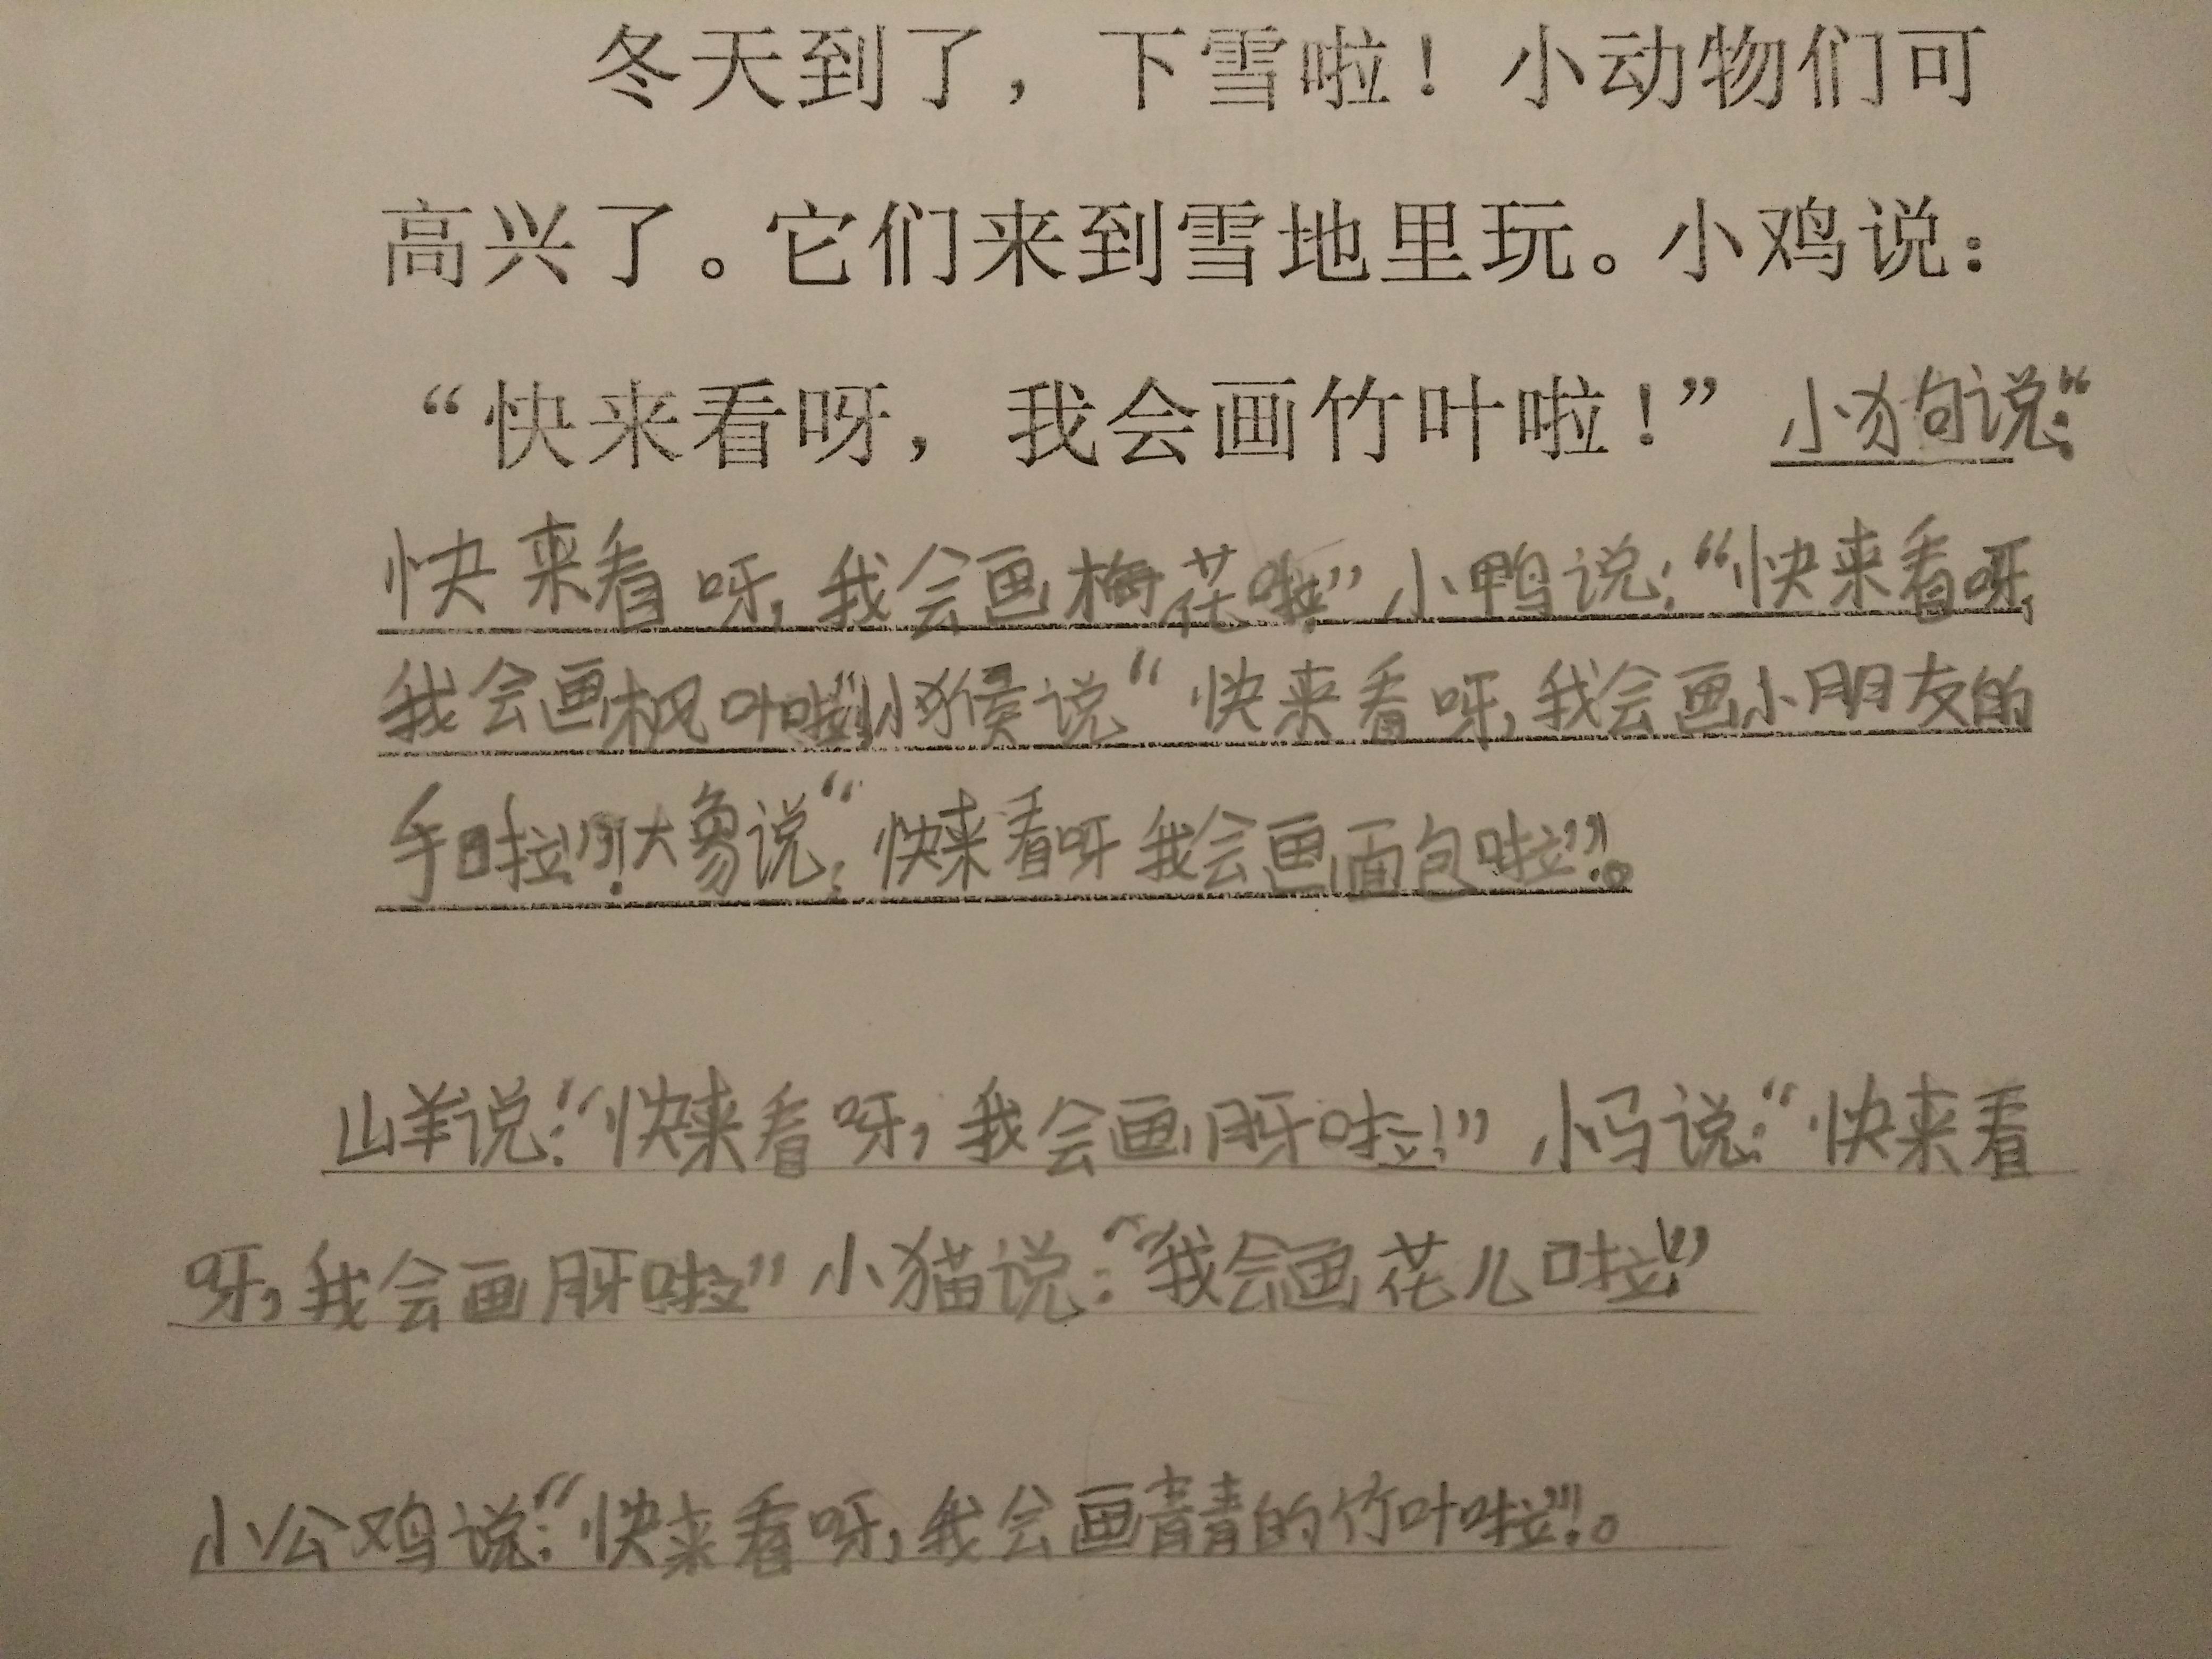 冬天到了，下雪啦！小动物们可
高兴了。它们来到雪地里玩。小鸡说：
“快来看呀，我会画竹叶啦！”小狗说：“
快来看呀，我会画梅花啦”小鸭说：“快来看呀，
我会画枫叶啦”小猴说“快来看呀，我会画小朋友的
手啦！”大象说：“快来看呀我会画面包啦！”。
山羊说：“快来看呀，我会画月牙啦！”小马说：“快来看
呀，我会画月牙啦”小猫说：“我会画花儿啦！”
小公鸡说：“快来看呀，我会画青青的竹叶啦！”。